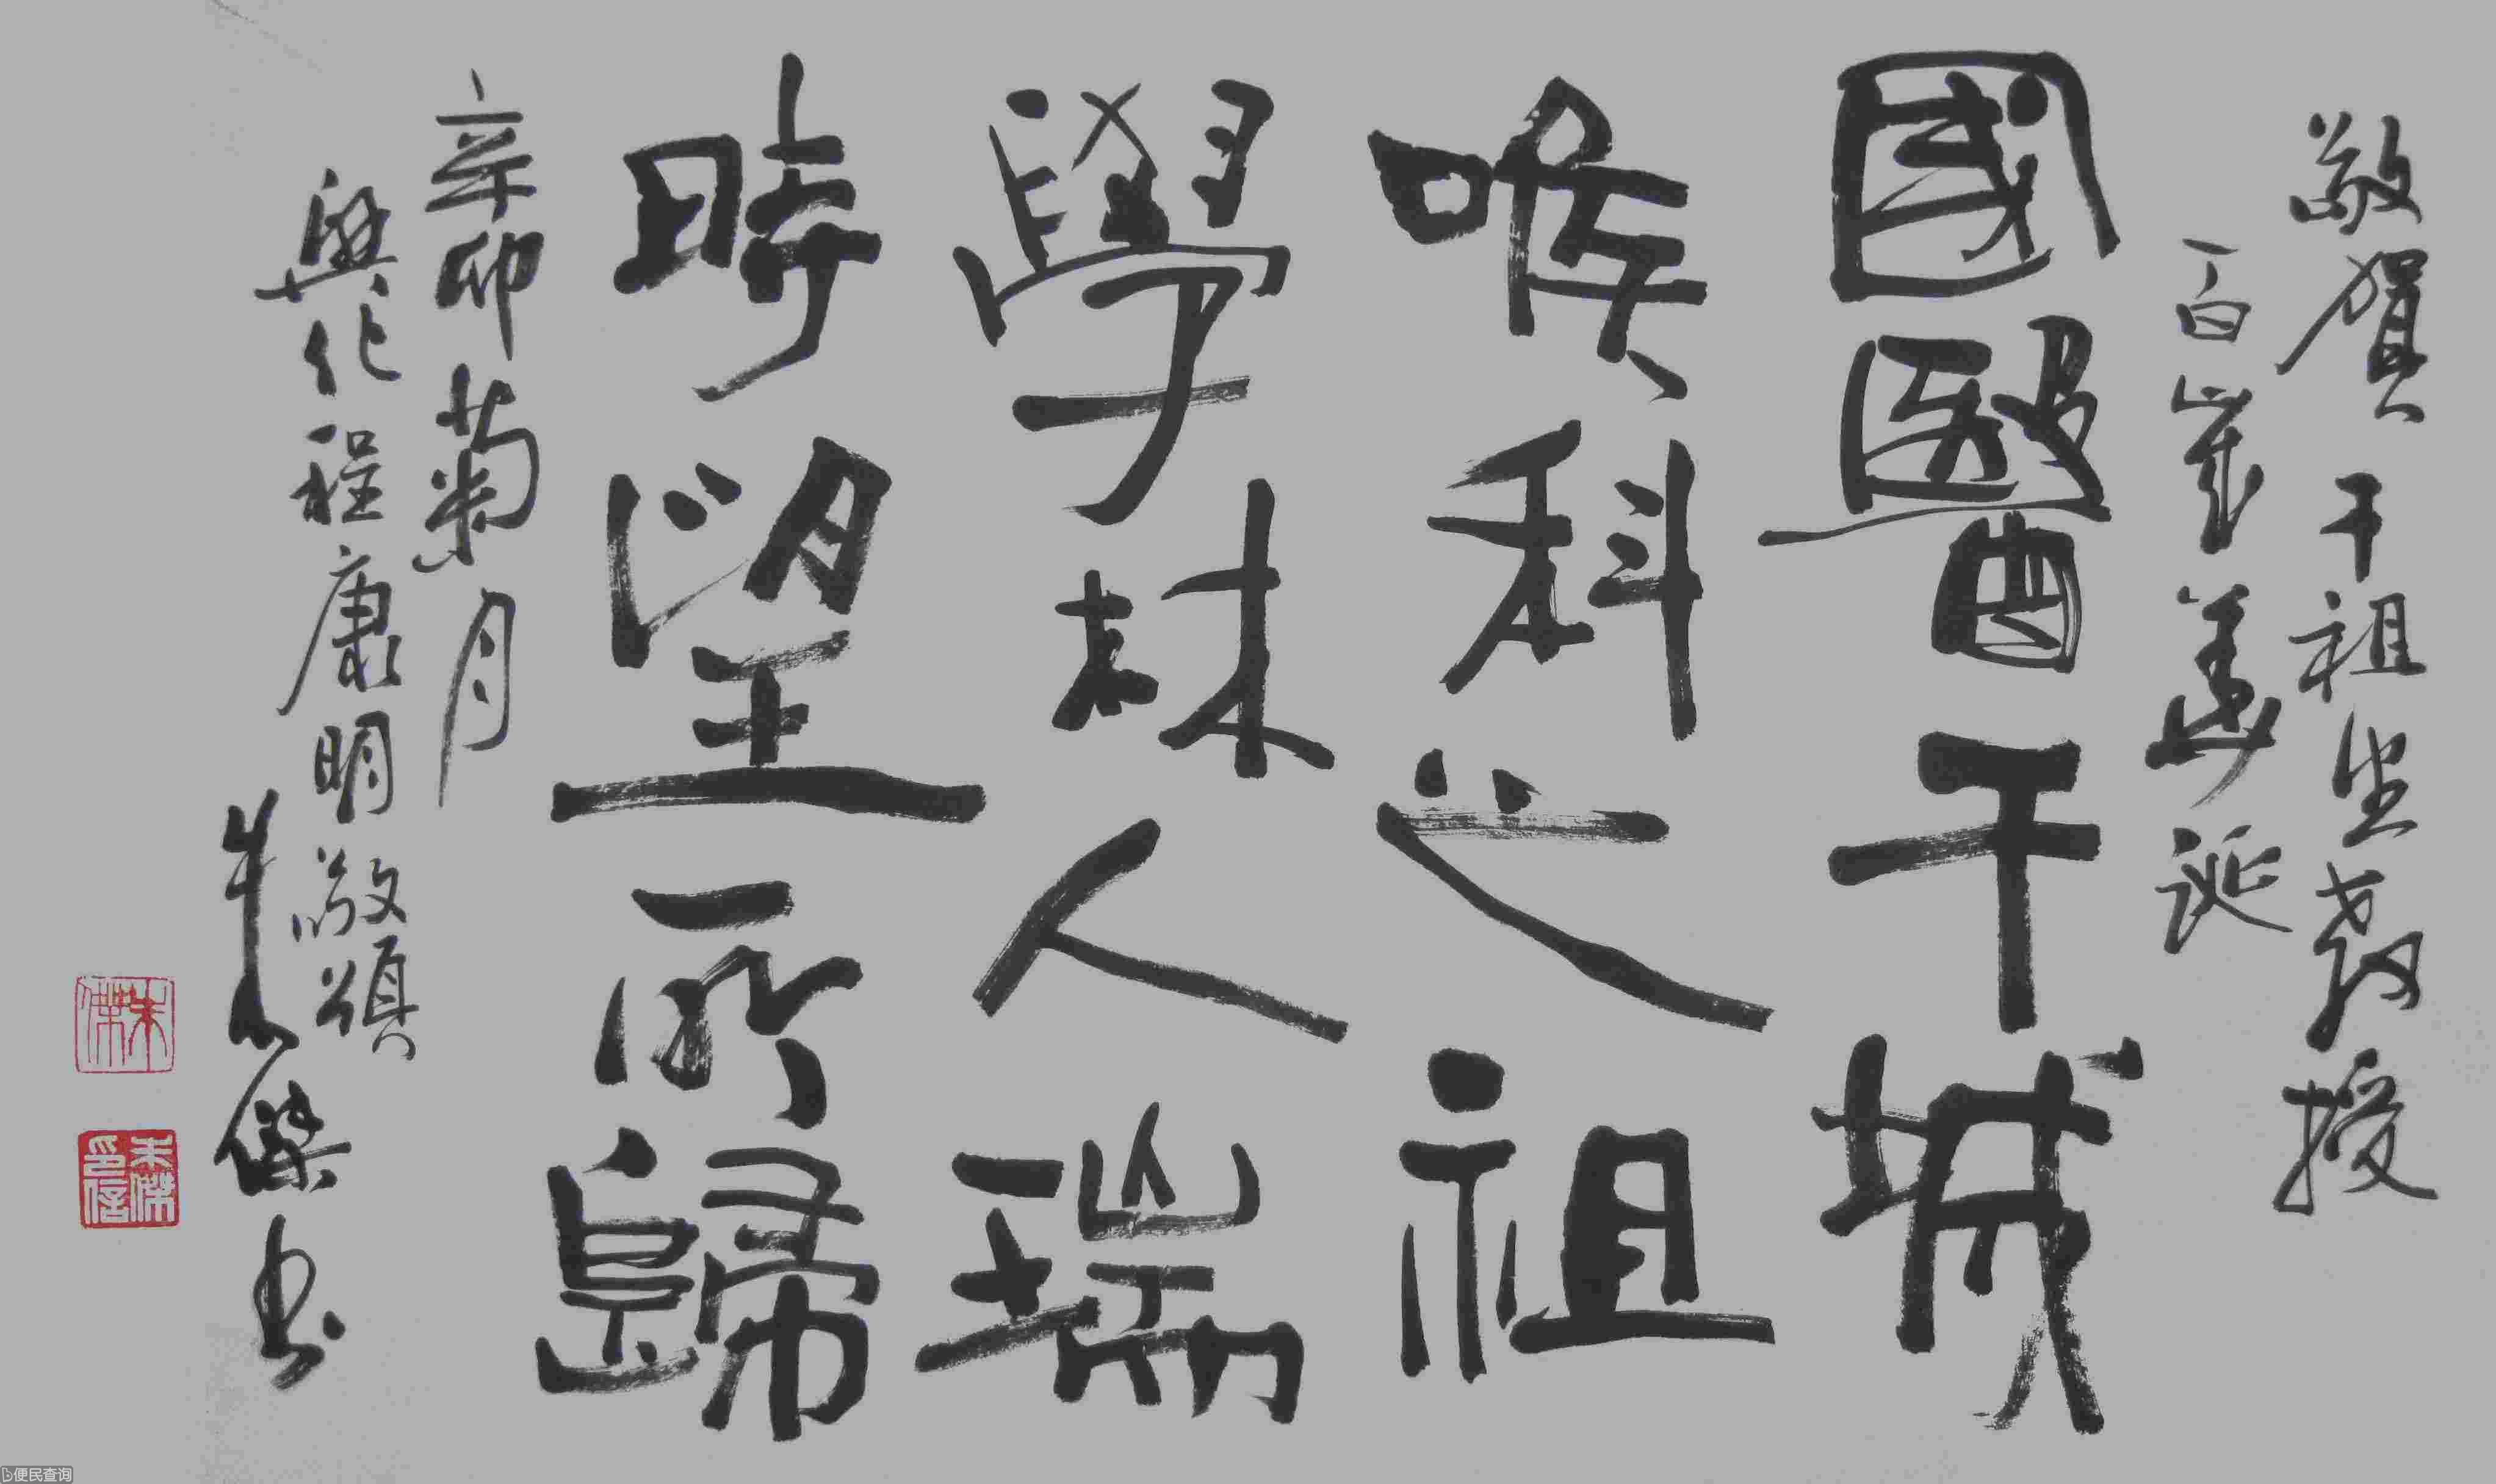 敬賀干祖望教授
百歲華誕
國醫干城
喉科之祖
學林人瑞
時望所歸
辛卯菊月
興化程康明敬頌
朱傑書
朱傑
朱傑印信
便民查询